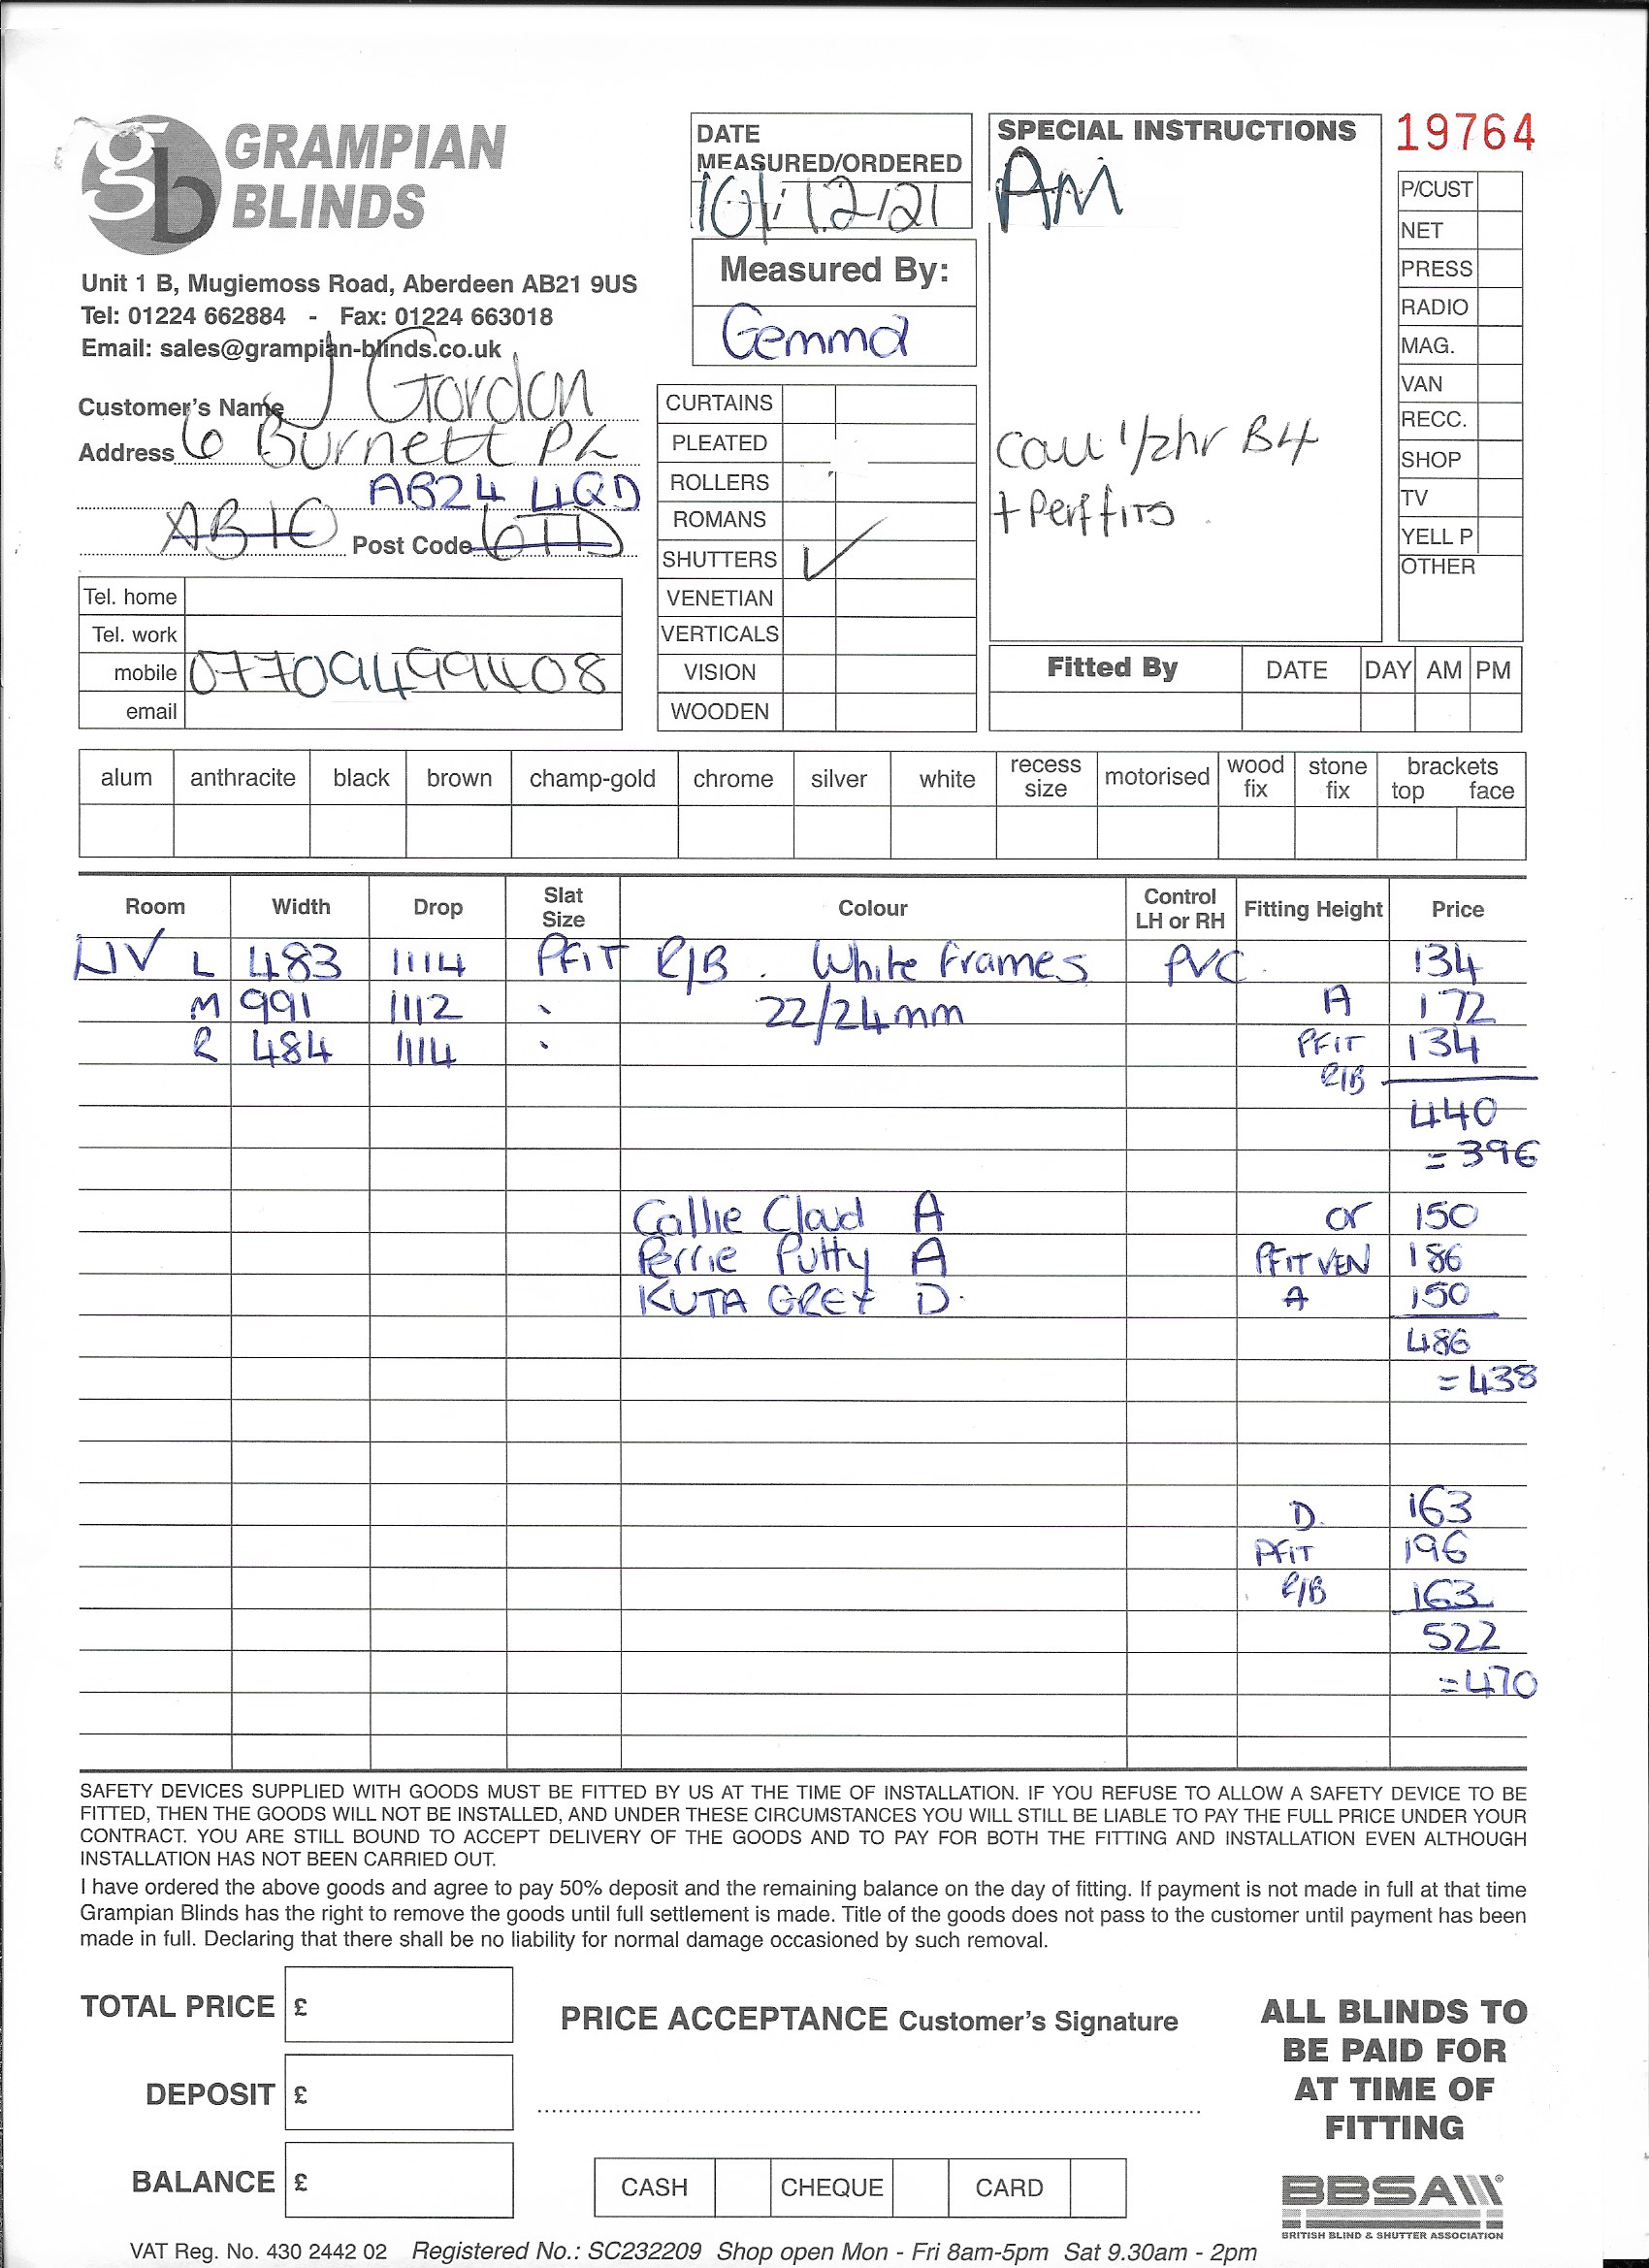 gb GRAMPIAN BLINDS
Unit 1 B, Mugiemoss Road, Aberdeen AB21 9US
Tel: 01224 662884 - Fax: 01224 663018
Email: sales@grampian-blinds.co.uk
Customer's Name J Gordon
Address 6 Burnett PL
AB24 4QD
AB10 Post Code 6TD
Tel. home
Tel. work
mobile 07709499408
email
DATE MEASURED/ORDERED
10/12/21
Measured By:
Gemma
CURTAINS
PLEATED
ROLLERS
ROMANS
SHUTTERS ✓
VENETIAN
VERTICALS
VISION
WOODEN
SPECIAL INSTRUCTIONS
AM
Call 1/2hr B4
+ Perffits
19764
P/CUST
NET
PRESS
RADIO
MAG.
VAN
RECC.
SHOP
TV
YELL P
OTHER
Fitted By DATE DAY AM PM
alum anthracite black brown champ-gold chrome silver white recess size motorised wood fix stone fix brackets top face
Room Width Drop Slat Size Colour Control LH or RH Fitting Height Price
LIV L 483 1114 PFIT R/B . White Frames PVC 134
M 991 1112 " 22/24mm A 172
R 484 1114 " PFIT 134
R/B
440
= 396
Callie Cloud A or 150
Perrie Putty A PFIT VEN 186
KUTA GREY D A 150
486
= 438
D. 163
PFIT 196
R/B 163
522
= 470
SAFETY DEVICES SUPPLIED WITH GOODS MUST BE FITTED BY US AT THE TIME OF INSTALLATION. IF YOU REFUSE TO ALLOW A SAFETY DEVICE TO BE
FITTED, THEN THE GOODS WILL NOT BE INSTALLED, AND UNDER THESE CIRCUMSTANCES YOU WILL STILL BE LIABLE TO PAY THE FULL PRICE UNDER YOUR
CONTRACT. YOU ARE STILL BOUND TO ACCEPT DELIVERY OF THE GOODS AND TO PAY FOR BOTH THE FITTING AND INSTALLATION EVEN ALTHOUGH
INSTALLATION HAS NOT BEEN CARRIED OUT.
I have ordered the above goods and agree to pay 50% deposit and the remaining balance on the day of fitting. If payment is not made in full at that time
Grampian Blinds has the right to remove the goods until full settlement is made. Title of the goods does not pass to the customer until payment has been
made in full. Declaring that there shall be no liability for normal damage occasioned by such removal.
TOTAL PRICE £
DEPOSIT £
BALANCE £
PRICE ACCEPTANCE Customer's Signature
CASH CHEQUE CARD
ALL BLINDS TO
BE PAID FOR
AT TIME OF
FITTING
BBSA®
BRITISH BLIND & SHUTTER ASSOCIATION
VAT Reg. No. 430 2442 02 Registered No.: SC232209 Shop open Mon - Fri 8am-5pm Sat 9.30am - 2pm